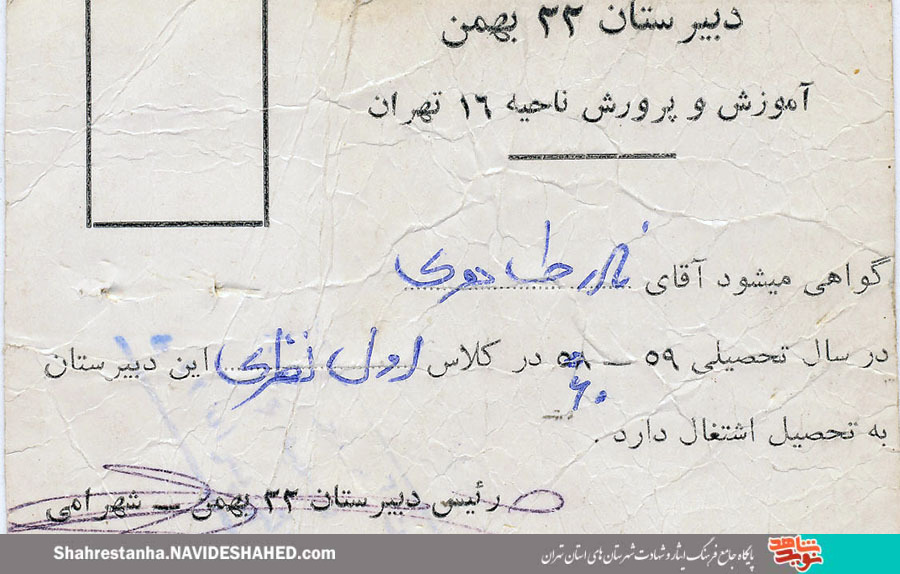 دبیرستان ۲۲ بهمن
آموزش و پرورش ناحیه ۱۶ تهران
گواهی میشود آقای
در سال تحصیلی ۵۹ — ۵۸ در کلاس اول نظری این دبیرستان
۶۰
به تحصیل اشتغال دارد .
رئیس دبیرستان ۲۲ بهمن — شهرامی
Shahrestanha.NAVIDESHAHED.com
پایگاه جامع فرهنگ ایثار و شهادت شهرستان های استان تهران
نوید شاهد